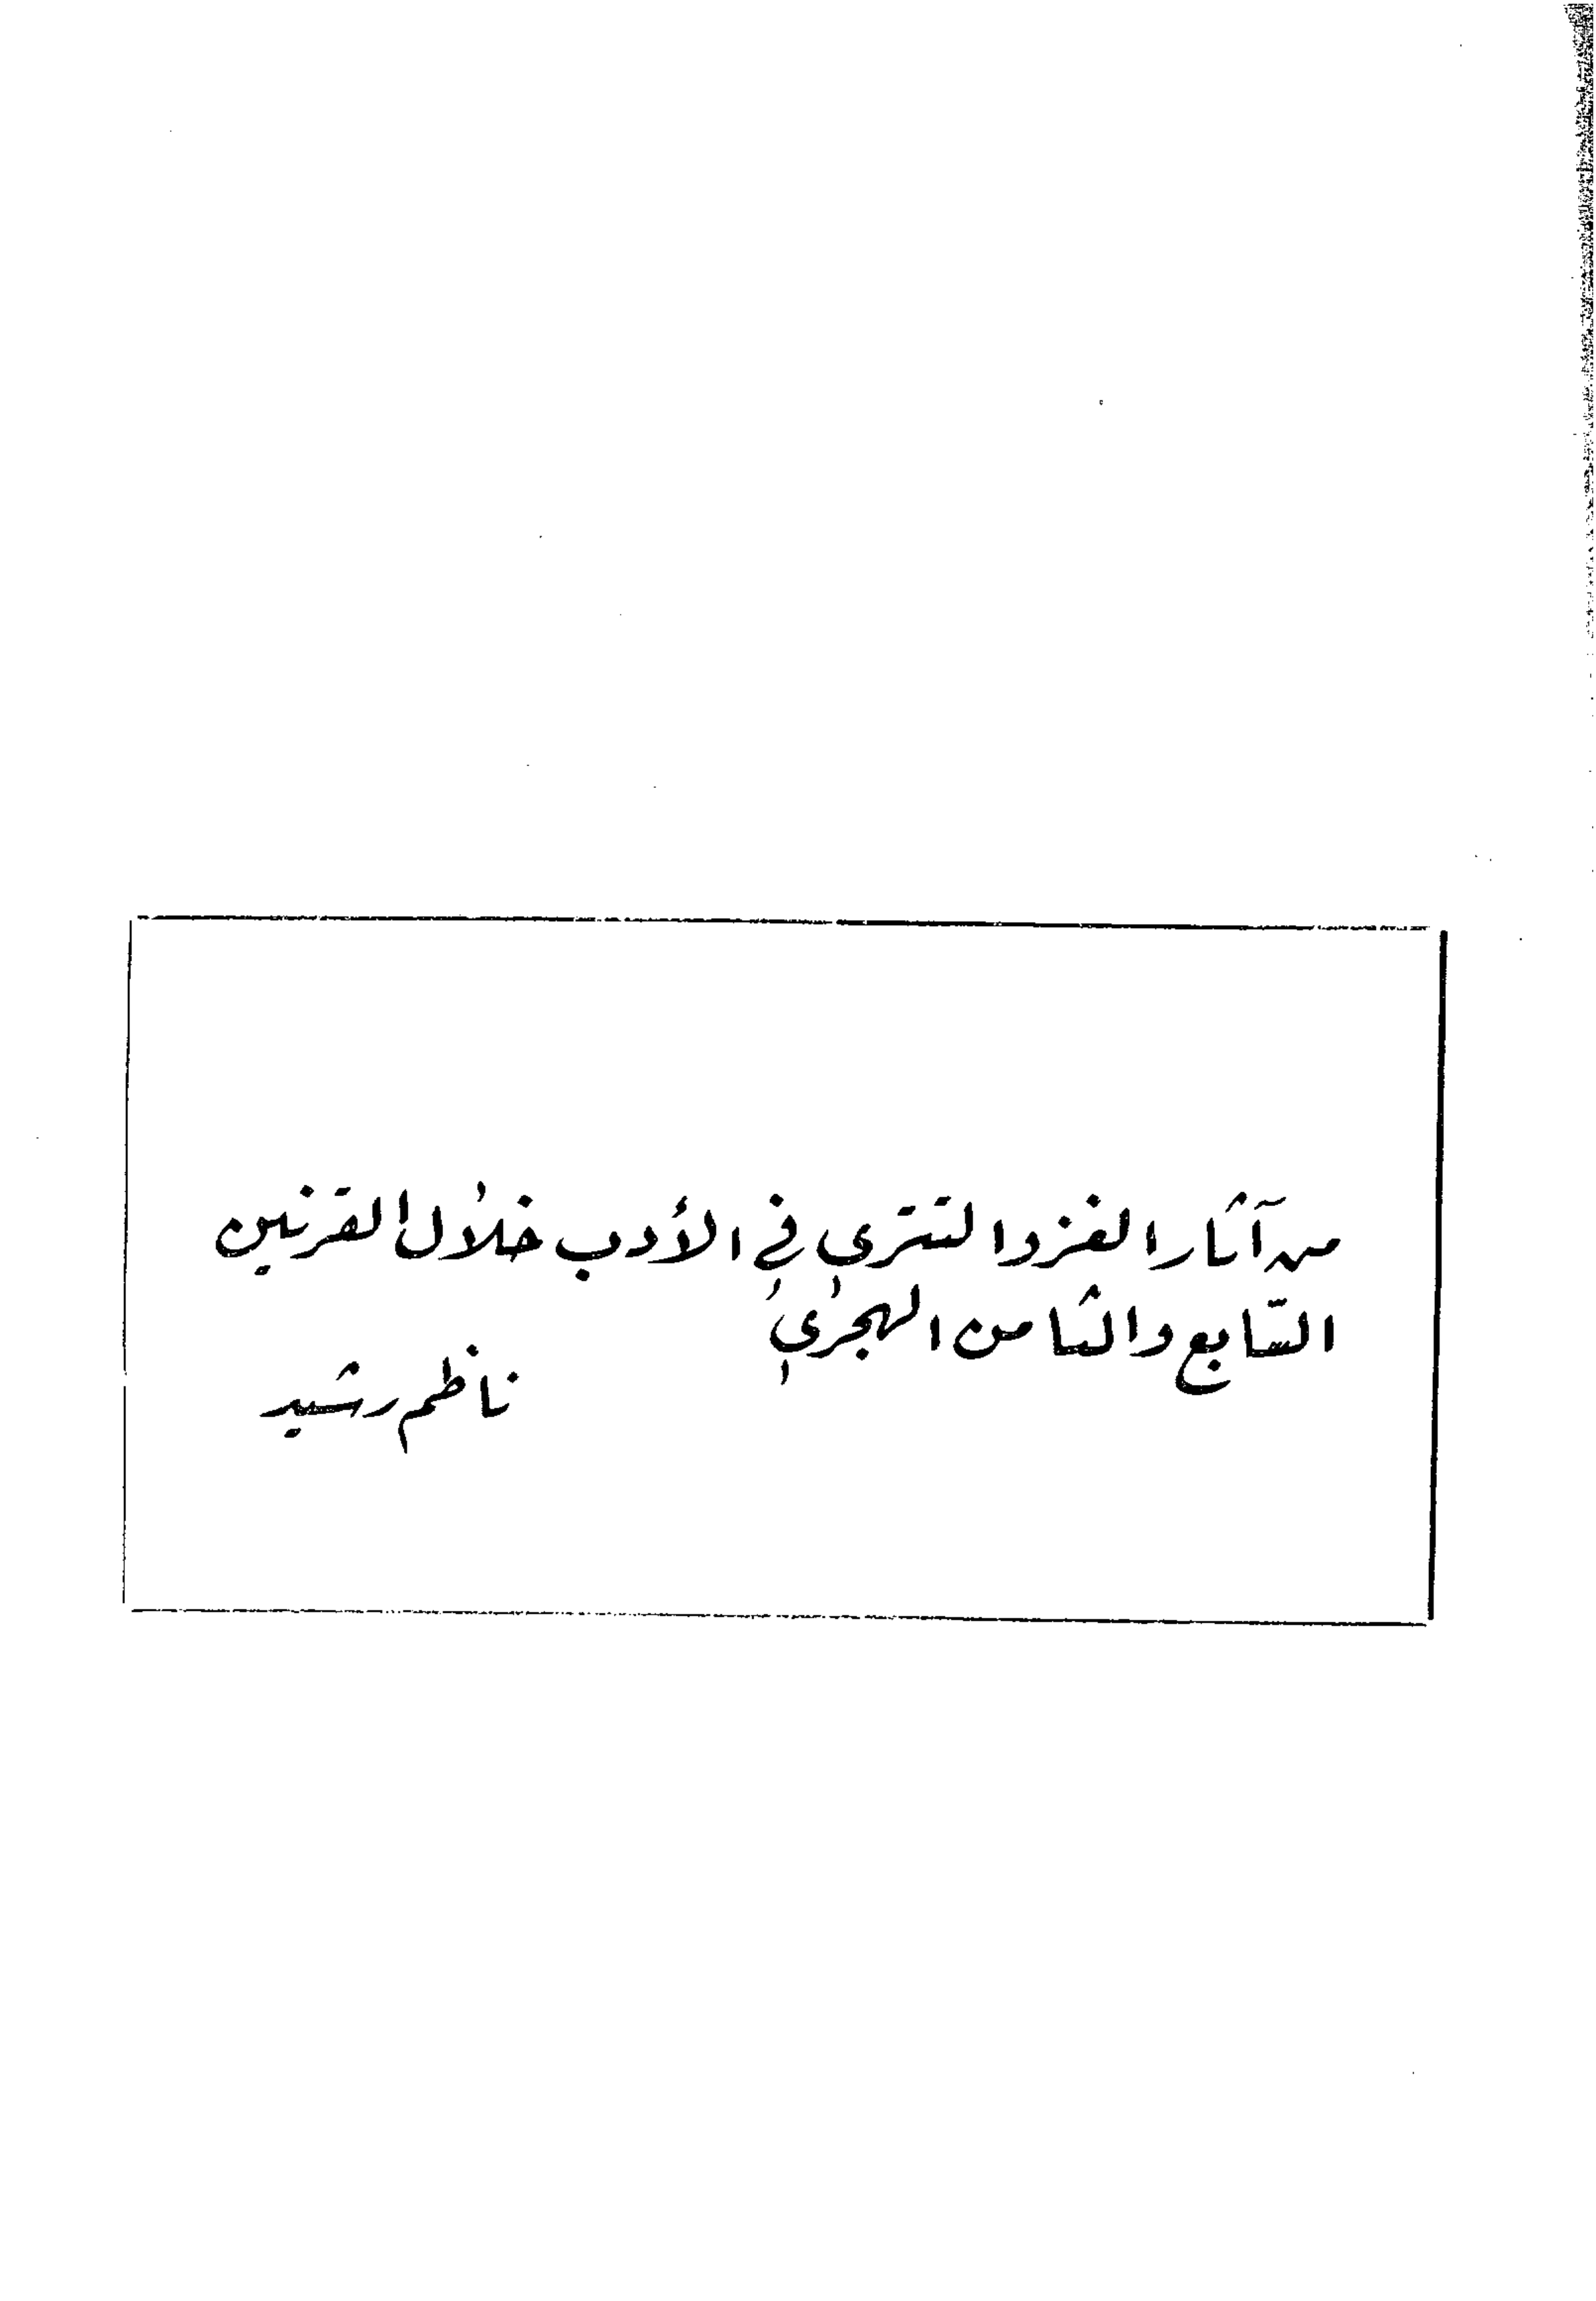 من آثار الغزو التتري في الأدب خلال القرنين
السّابع والثامن الهجري
ناظم رشيد